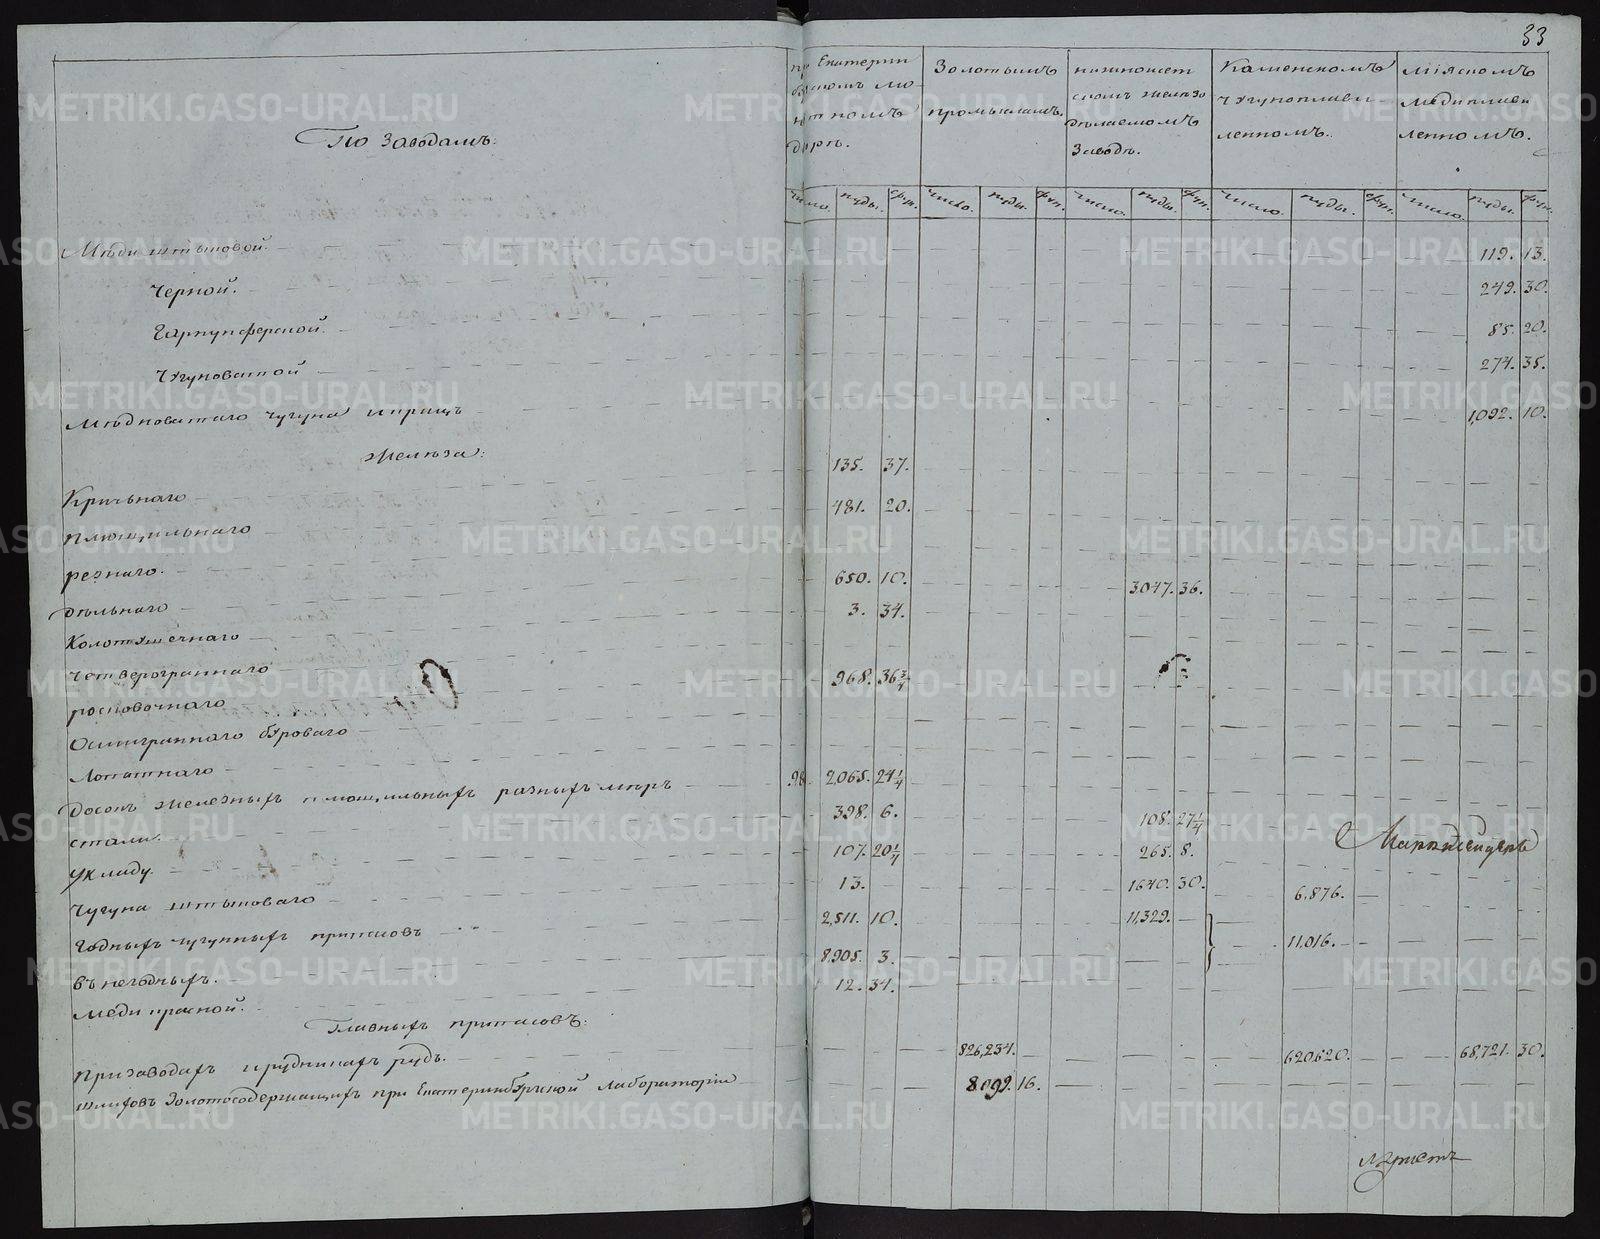 33
По Заводамъ:
при Екатерин
бургскомъ мо
нетномъ
дворѣ.
Золотымъ
промысламъ.
нижноисет
скомъ железо
дѣлаемомъ
Заводѣ.
Каменскомъ
чугуноплави
ленномъ.
Міяскомъ
медиплави
ленномъ.
число. пуды. фун. число. пуды. фун. число. пуды. фун. число. пуды. фун. число. пуды. фун.
Мѣди штыковой. 119. 13.
Черной. 249. 30.
Гаркупферской. 85. 20.
Чугуноватой 274. 35.
Мѣдноватаго чугуна и крицъ 1,092. 10.
Желѣза:
Кричьнаго 135. 37.
плющильнаго 481. 20.
резнаго.
дѣльнаго 650. 10. 3,047. 36.
Колотушечнаго 3. 34.
четверограннаго
росковочнаго 968. 36 3/4
Осмиграннаго буроваго
Лопатнаго
Досокъ железныхъ плющильныхъ разныхъ мѣръ 98. 2065. 24 1/4
стали. 398. 6. 108. 27 1/4
укладу. 107. 20 1/4 265. 8.
Чугуна штыковаго 13. 1640. 30. 6,876.
Годныхъ чугунныхъ припасовъ 2,511. 10. 11,329.
11,016.
въ негодныхъ. 8,905. 3.
меди красной. 12. 34.
Главныхъ припасовъ:
При заводахъ и рудникахъ рудъ. 826,234. 620,620. 68,721. 30.
шлиховъ Золотосодержащихъ при Екатеринбургской Лаборатории 8,092. 16.
METRIKI.GASO-URAL.RU